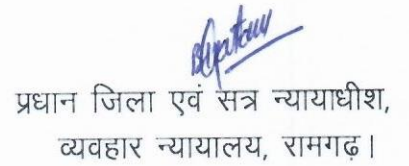 प्रधान जिला एवं सत्र न्यायाधीश,
व्यवहार न्यायालय, रामगढ़।